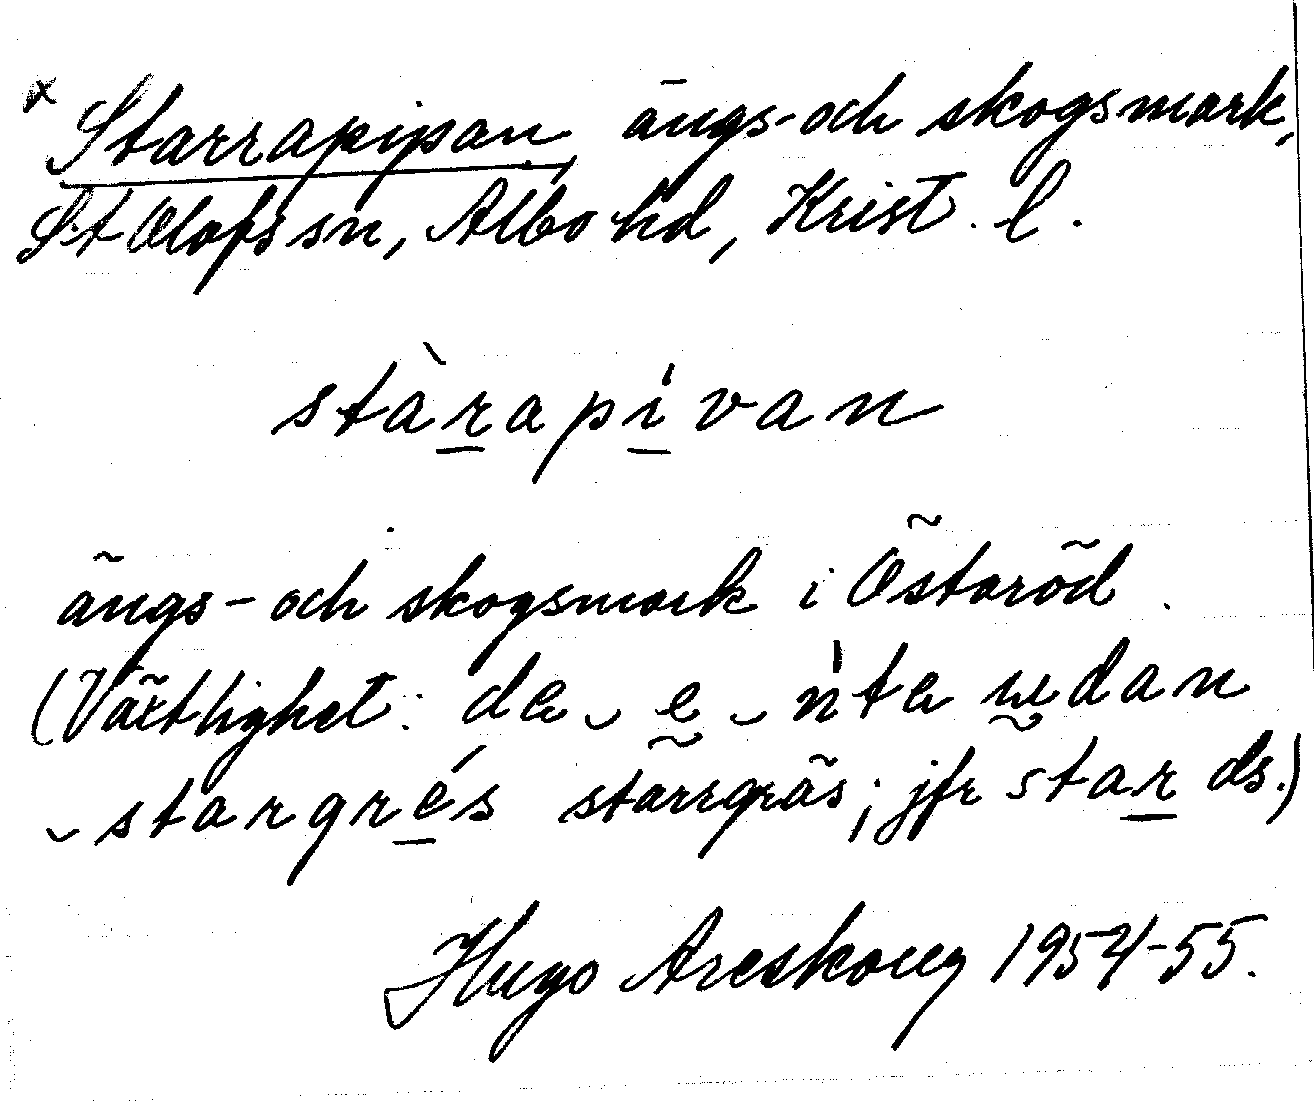 x Starrapipan, ängs- och skogsmark,
St Olofs sn, Albo hd, Krist. l.
stàrapívan
ängs- och skogsmark i Östaröd.
(Växtlighet: dæ e nte
stargrés starrgräs; jfr star ds.)
Hugo Areskoug 1954-55.